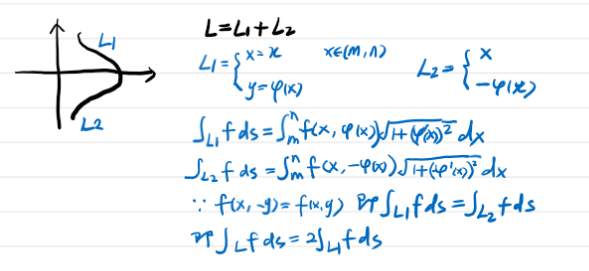 L=L₁+L₂
L₁
L₁={x=x x∈(m,n)
y=φ(x)
L₂={x
-φ(x)
L₂
∫L₁ f ds=∫ₘⁿ f(x,φ(x))√(1+(φ'(x))²) dx
∫L₂ f ds=∫ₘⁿ f(x,-φ(x))√(1+(-φ'(x))²) dx
∵ f(x,-y)=f(x,y) 即∫L₁ f ds=∫L₂ f ds
即∫L f ds=2∫L₁ f ds